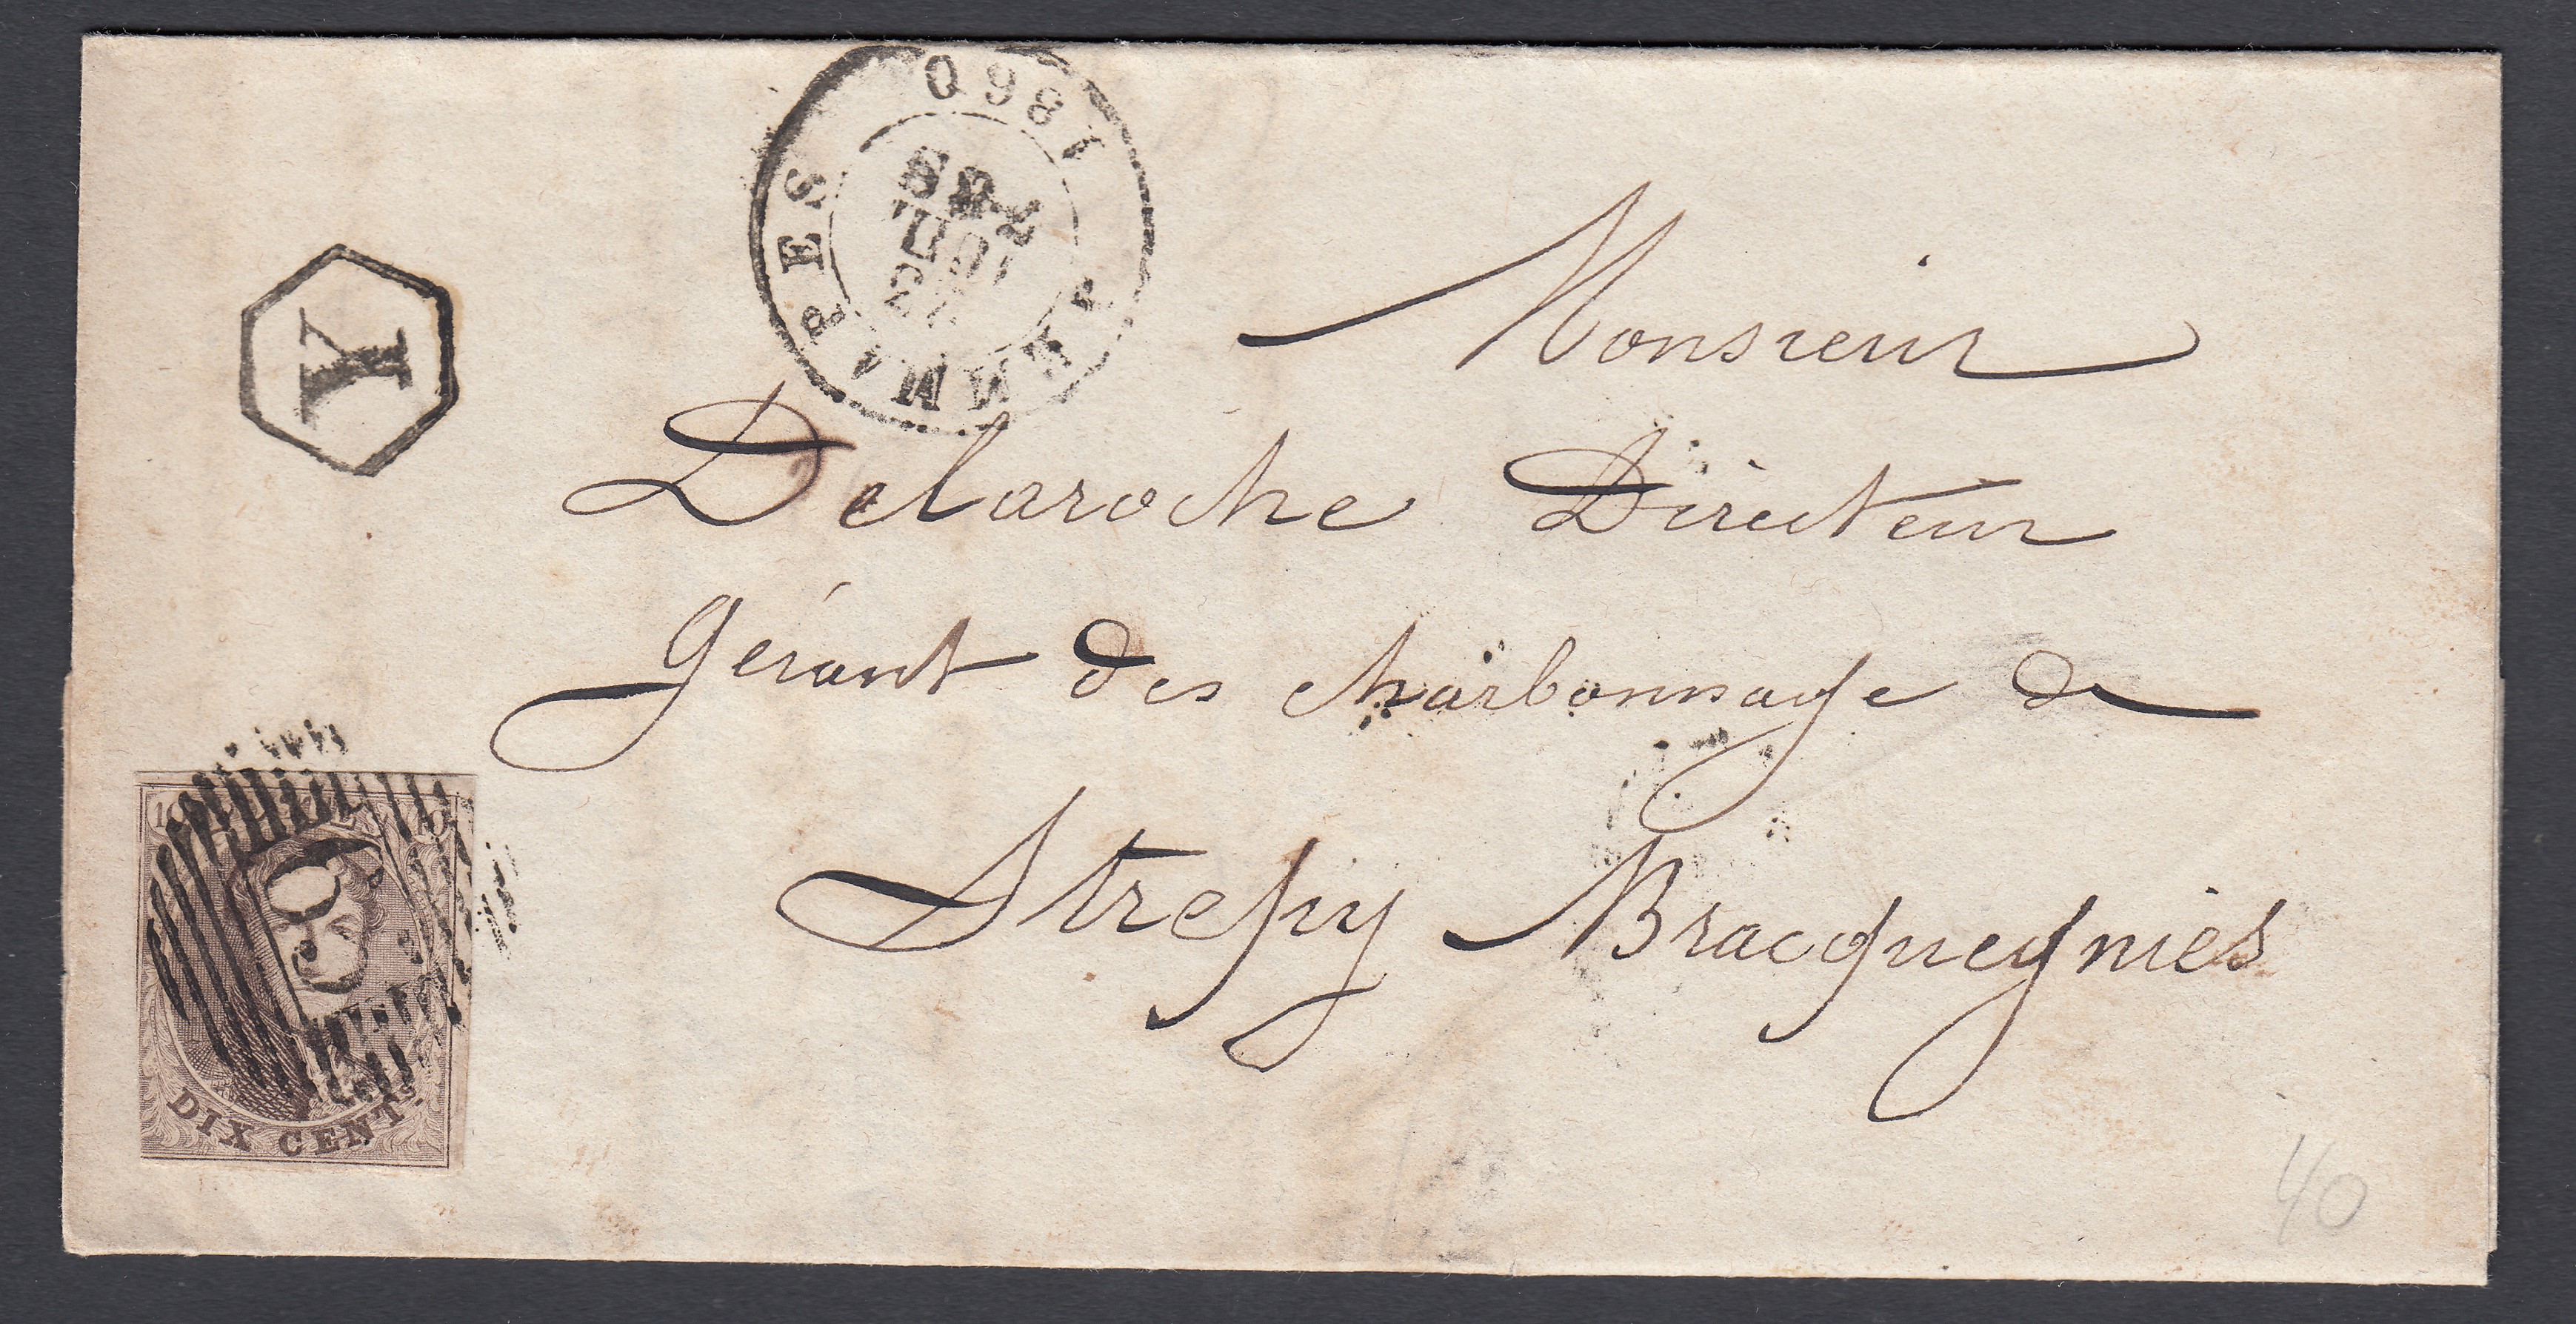 1860
JEMMAPES
JUIL
Y
Monsieur
Delaroche Directeur
Gérant des charbonnage de
Strepy Bracquegnies
10
DIX CENTS.
40